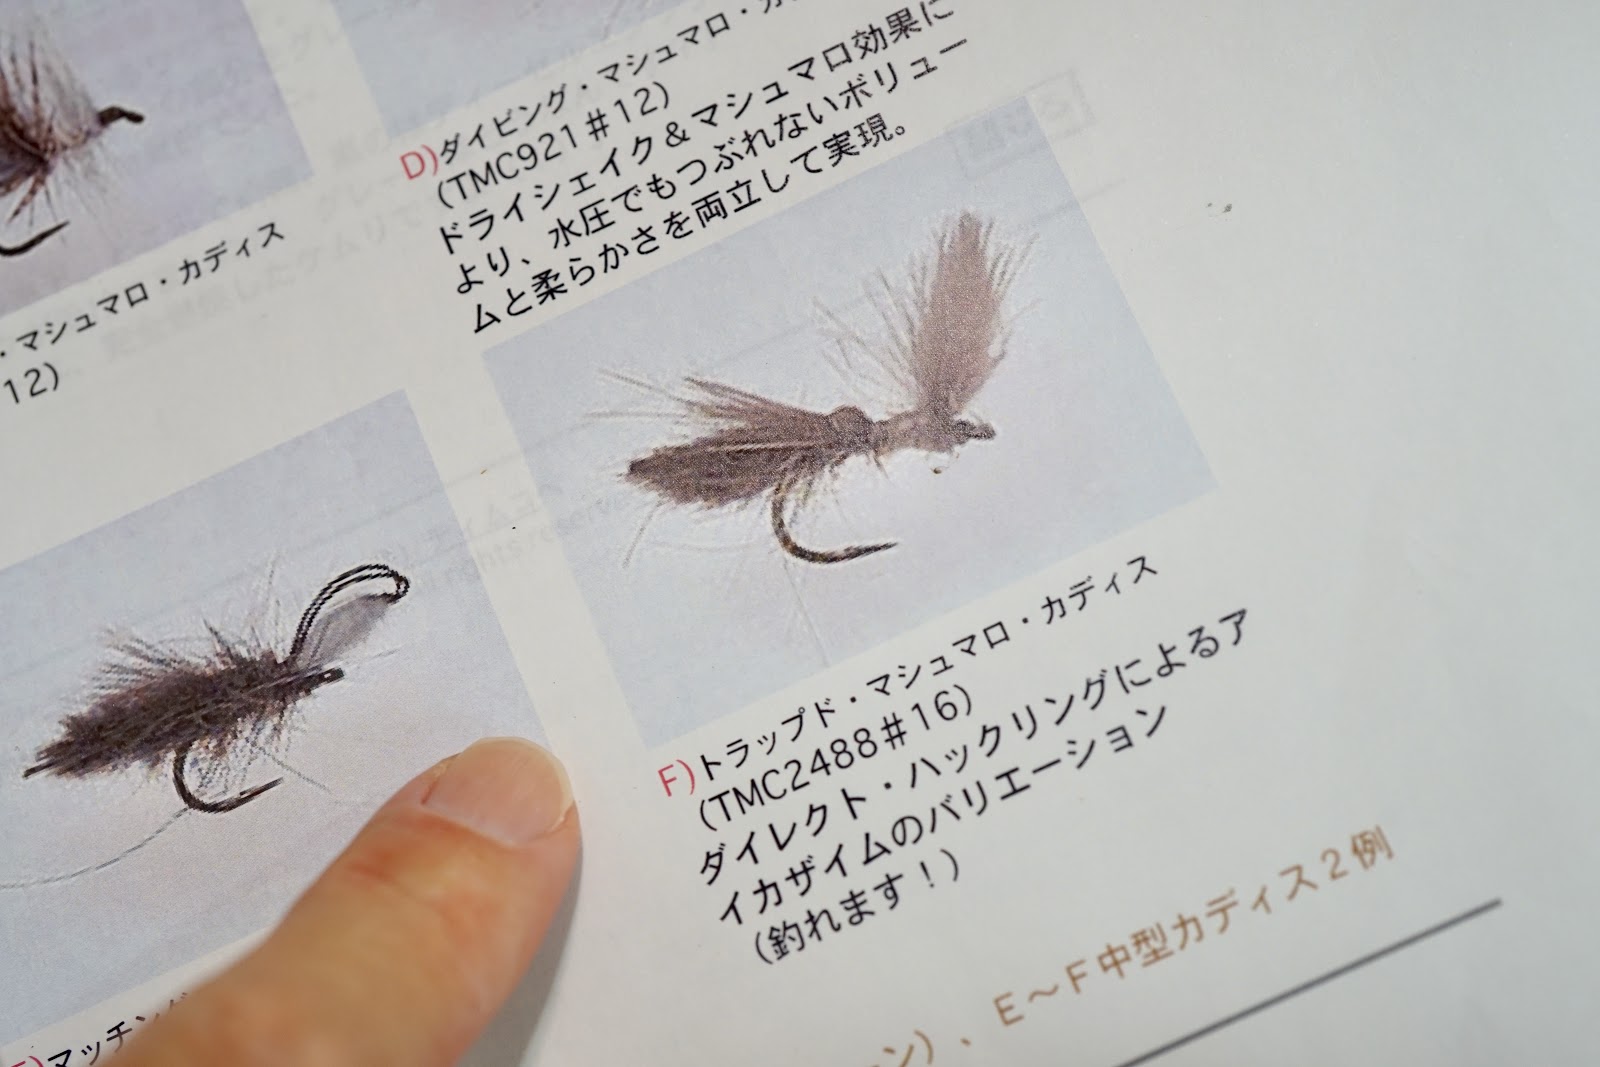 ・マシュマロ・カディス
12）
D)ダイビング・マシュマロ・カ
（TMC921＃12）
ドライシェイク＆マシュマロ効果に
より、水圧でもつぶれないボリュー
ムと柔らかさを両立して実現。
マッチング
F)トラップド・マシュマロ・カディス
（TMC2488＃16）
ダイレクト・ハックリングによるア
イカザイムのバリエーション
（釣れます！）
ン）、E～F中型カディス2例